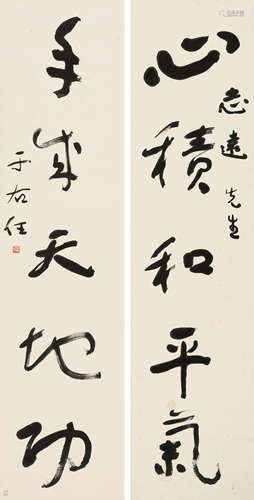 心積和平氣
志遠先生
手成天地功
于右任